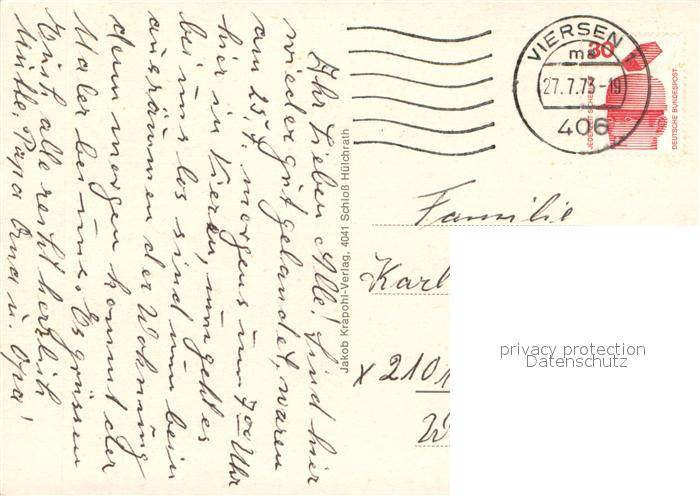 Ihr Lieben Alle! Sind hier
wieder gut gelandet, waren
am 25.7. morgens um 7 00 Uhr
hier in Viersen, nun geht es
bei uns los sind nun beim
ausräumen der Wohnung
denn morgen kommt der
Maler bei uns. Es grüssen
Euch alle recht herzlich
Papa Oma u. Opa!
Jakob Krapohl-Verlag, 4041 Schloß Hülchrath
VIERSEN 1
ma
27.7.73-19
406
30
JEDERZEIT SICHERHEIT
DEUTSCHE BUNDESPOST
Familie
Karl
x 2101
W
privacy protection
Datenschutz